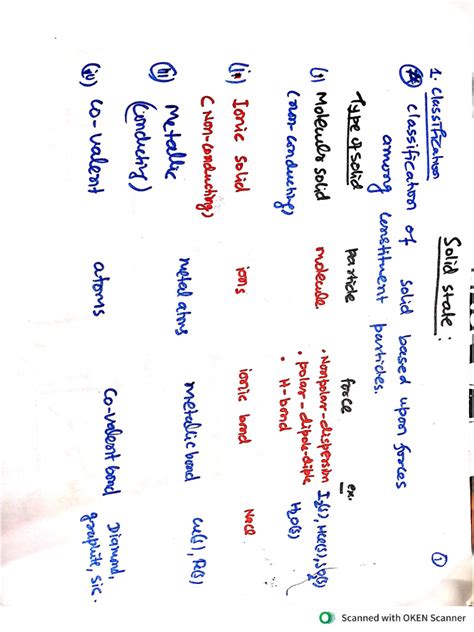 Solid state :
①
1. Classification
classification of solid based upon forces
among constituent particles.
Type of solid particle force ex.
(i) Molecular solid molecule • Nonpolar-dispersion I₂(s), HCl(s), SO₂(s)
(non-conducting) • polar-dipole-diple H₂O(s)
• H-bond
(ii) Ionic solid ions ionic bond NaCl
(Non-conducting)
(iii) Metallic metal atoms metallic bond
(conducting)
(iv) co-valent atoms co-valent bond Diamond,
graphite, sic.
Scanned with OKEN Scanner